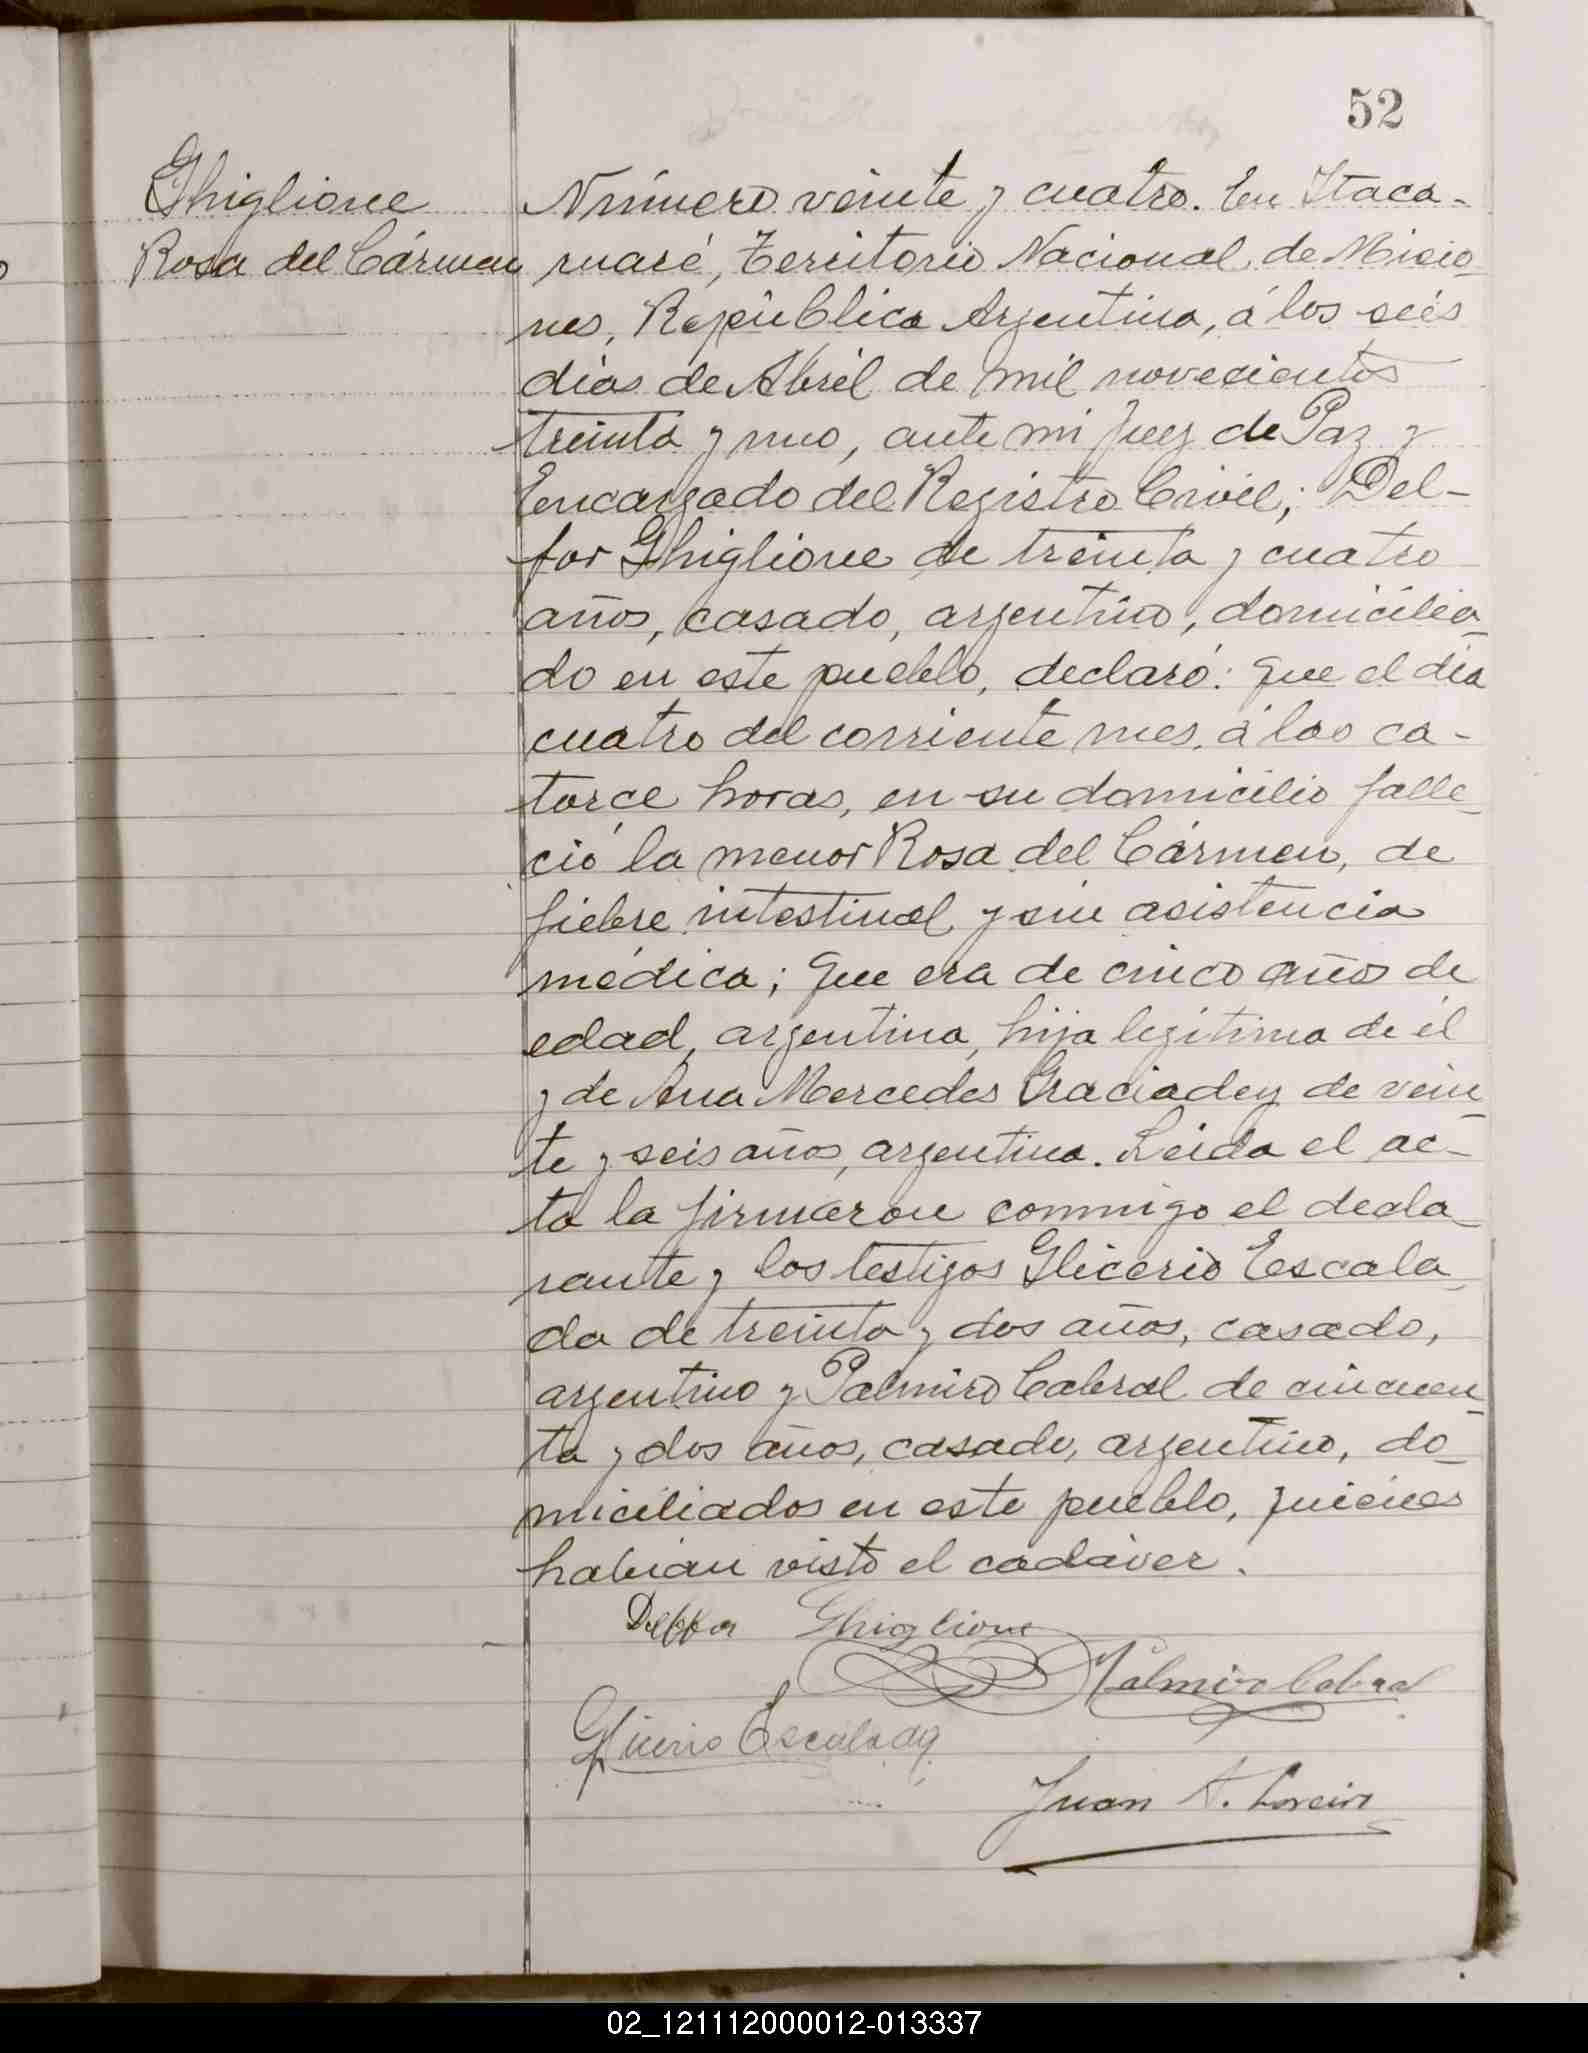 52
Ghiglione
Rosa del Cármen
Número veinte y cuatro. En Itaca-
ruaré, Territorio Nacional de Misio-
nes, República Argentina, á los seis
días de Abril de mil novecientos
treinta y uno, ante mi Juez de Paz y
Encargado del Registro Civil; Del-
for Ghiglione de treinta y cuatro
años, casado, argentino, domicilia-
do en este pueblo, declaró: Que el día
cuatro del corriente mes, á las ca-
torce horas, en su domicilio falle-
ció la menor Rosa del Cármen, de
fiebre intestinal y sin asistencia
médica; Que era de cinco años de
edad, argentina, hija legítima de él
y de Ana Mercedes Graciadey de vein-
te y seis años, argentina. Leida el ac-
ta la firmaron conmigo el decla
rante y los testigos Glicerio Escala
da de treinta y dos años, casado,
argentino y Palmiro Cabral de cincuen-
ta y dos años, casado, argentino, do-
miciliados en este pueblo, quiénes
habían visto el cadáver.
Delfor Ghiglione
Palmiro Cabral
Glicerio Escalada
Juan A.
02_121112000012-013337